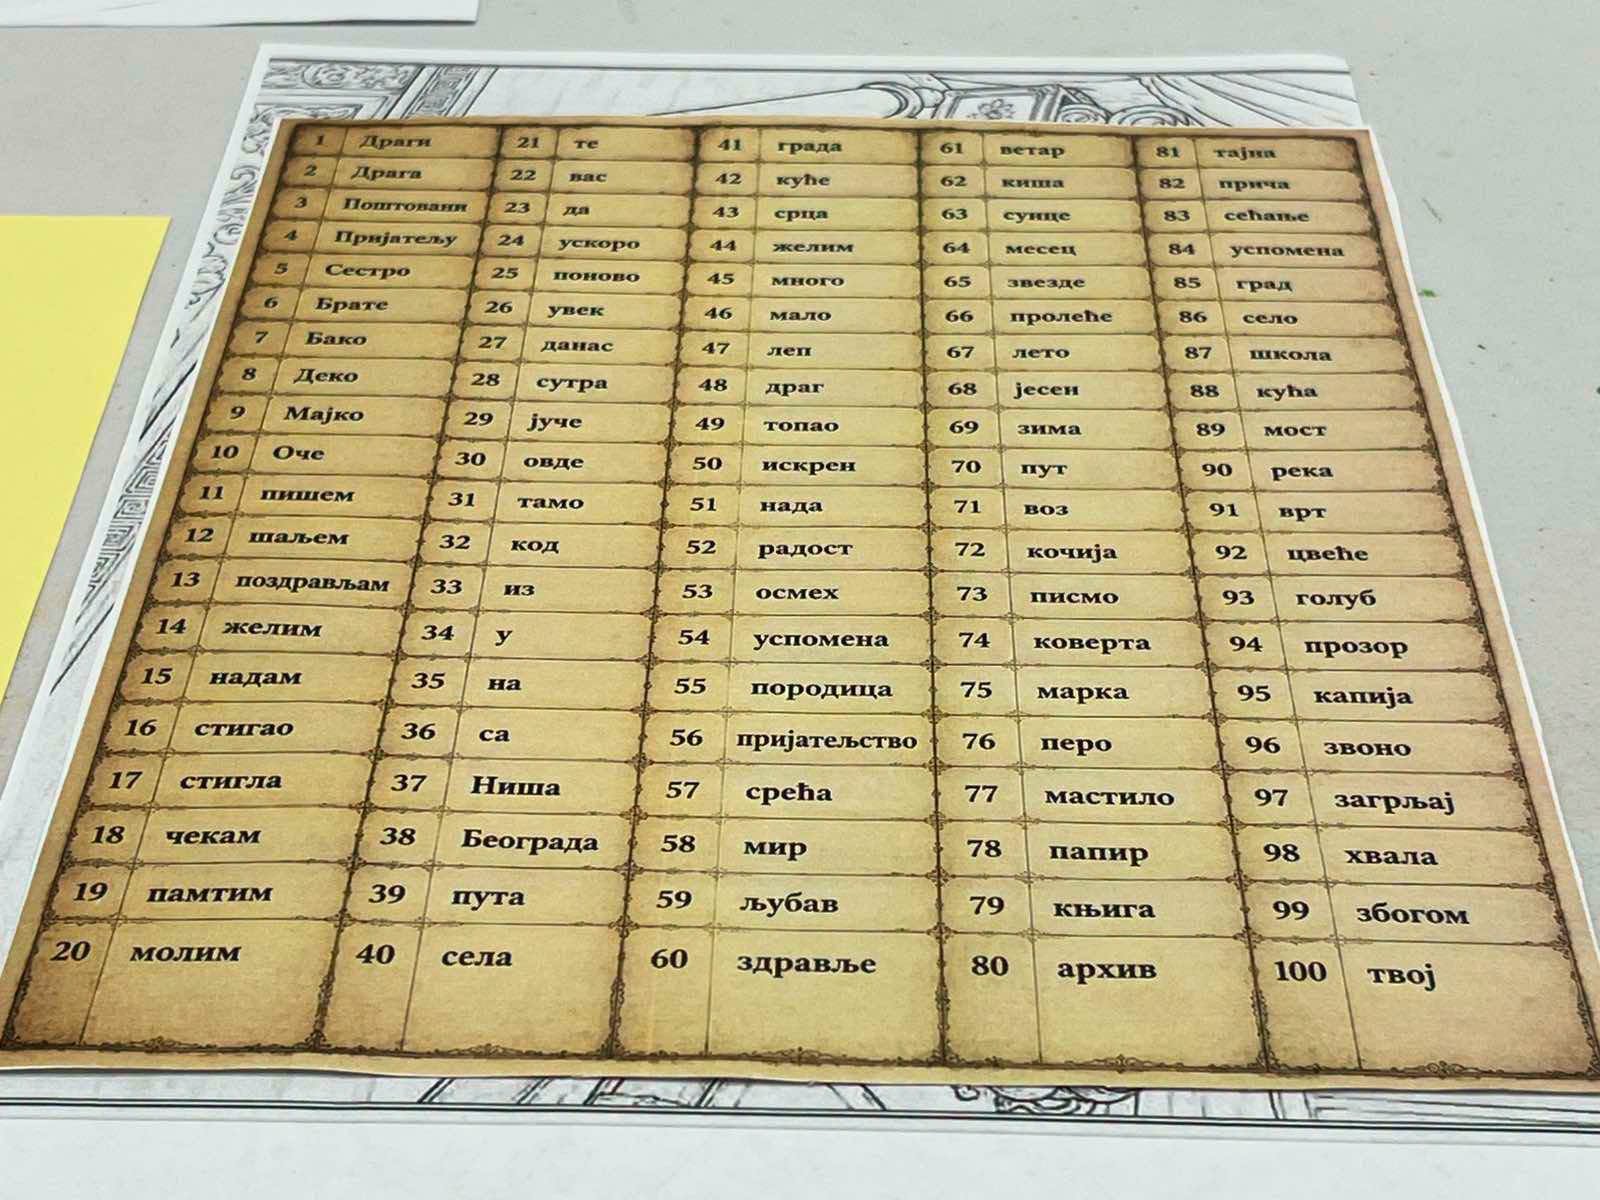 1 Драги 21 те 41 града 61 ветар 81 тајна
2 Драга 22 вас 42 куће 62 киша 82 прича
3 Поштовани 23 да 43 срца 63 сунце 83 сећање
4 Пријатељу 24 ускоро 44 желим 64 месец 84 успомена
5 Сестро 25 поново 45 много 65 звезде 85 град
6 Брате 26 увек 46 мало 66 пролеће 86 село
7 Бако 27 данас 47 леп 67 лето 87 школа
8 Деко 28 сутра 48 драг 68 јесен 88 кућа
9 Мајко 29 јуче 49 топао 69 зима 89 мост
10 Оче 30 овде 50 искрен 70 пут 90 река
11 пишем 31 тамо 51 нада 71 воз 91 врт
12 шаљем 32 код 52 радост 72 кочија 92 цвеће
13 поздрављам 33 из 53 осмех 73 писмо 93 голуб
14 желим 34 у 54 успомена 74 коверта 94 прозор
15 надам 35 на 55 породица 75 марка 95 капија
16 стигао 36 са 56 пријатељство 76 перо 96 звоно
17 стигла 37 Ниша 57 срећа 77 мастило 97 загрљај
18 чекам 38 Београда 58 мир 78 папир 98 хвала
19 памтим 39 пута 59 љубав 79 књига 99 збогом
20 молим 40 села 60 здравље 80 архив 100 твој